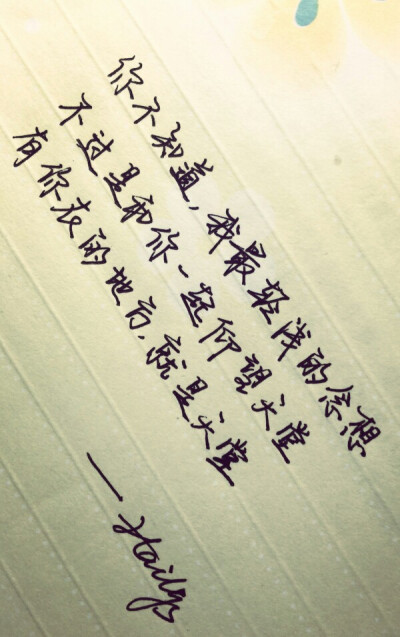 你不知道，我最轻浅的念想
不过是和你一起仰望天堂
有你在的地方，就是天堂